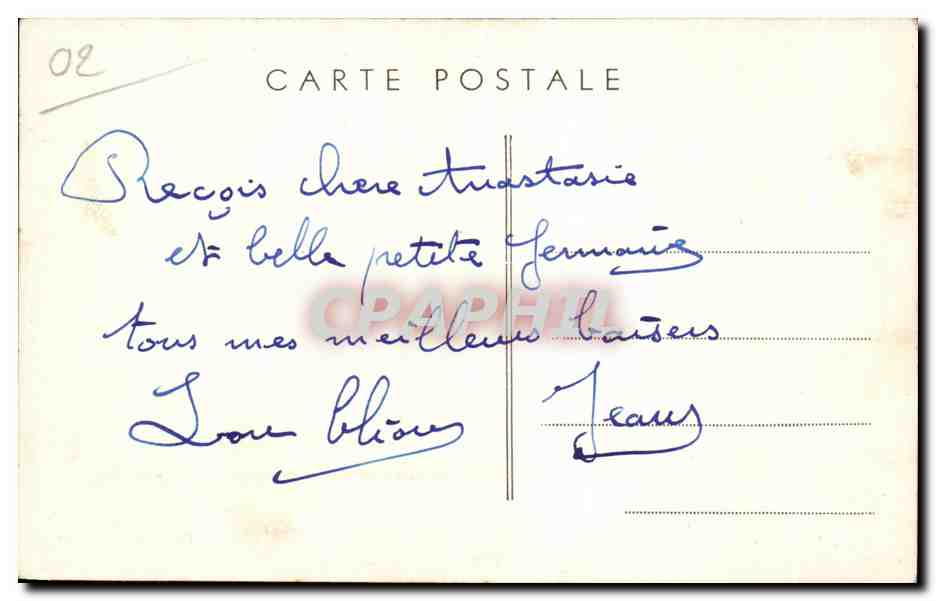 02
CARTE POSTALE
Reçois chere Anastasie
et belle petite Germaine
tous mes meilleurs baisers
CPAPHIL
Jean